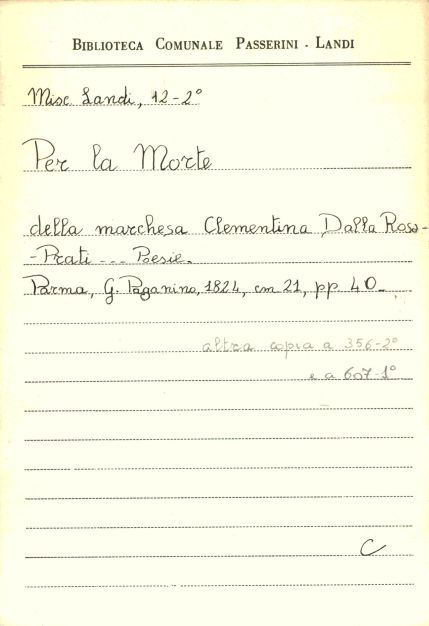 BIBLIOTECA COMUNALE PASSERINI - LANDI
Misc Landi, 12-2°
Per la Morte
della marchesa Clementina Dalla Rosa-
-Prati --- Poesie.
Parma, G. Paganino, 1824, cm 21, pp 40-
altra copia a 356-2°
e a 607-1°
C